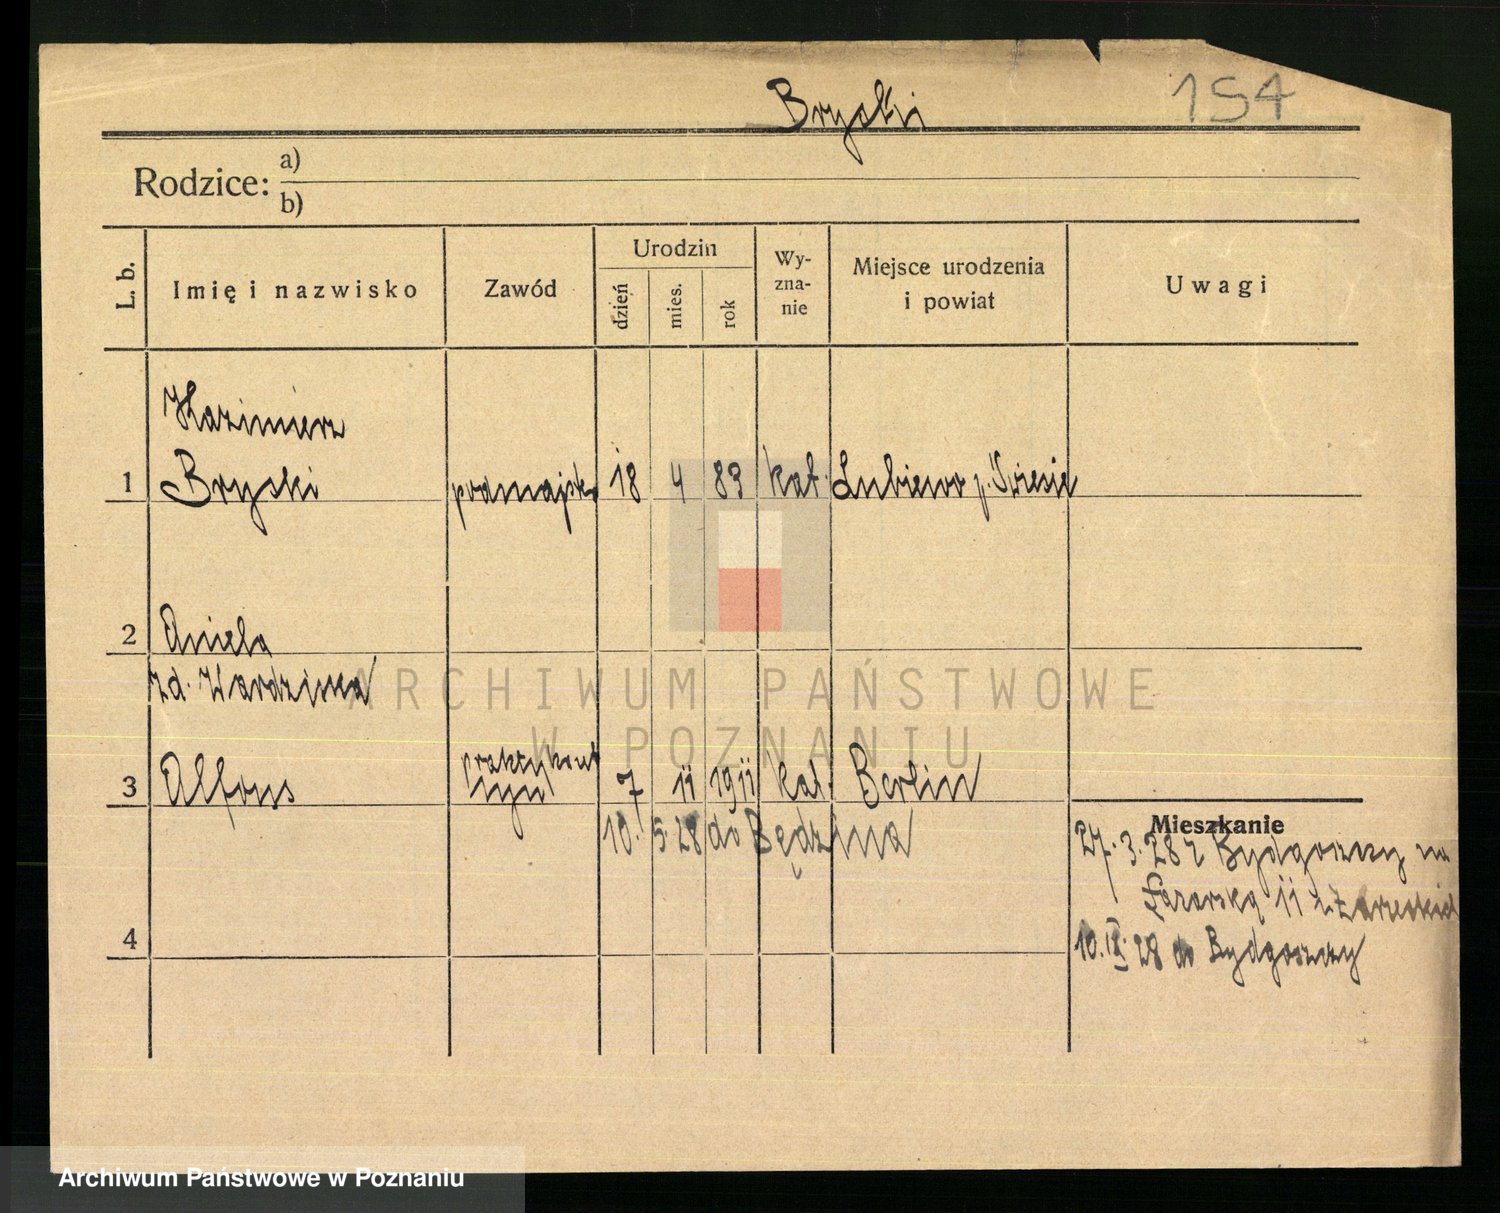 Bryski
154
Rodzice: a)
b)
L. b.
Imię i nazwisko
Zawód
Urodzin
dzień
mies.
rok
Wy-
zna-
nie
Miejsce urodzenia
i powiat
Uwagi
Kazimierz
1 Bryski podmajst. 18 4 83 kat. Lubiewo p. Świecie
2 Aniela
zd. Wardzińska
praktykant
3 Alfons 7 11 1911 kat. Berlin
10. 5. 28 do Będzina
Mieszkanie
27. 3. 28 z Bydgoszczy na
11
4
10. IX. 28 do Bydgoszczy
ARCHIWUM PAŃSTWOWE
W POZNANIU
Archiwum Państwowe w Poznaniu